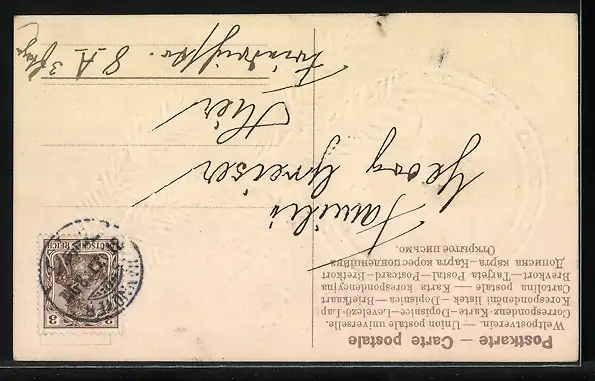 Postkarte — Carte postale
Weltpostverein. — Union postale universelle.
Correspondenz-Karte—Dopisnice—Levelező-Lap
Korespondenční listek — Dopisnica — Briefkaart
Cartolina postale — Karta korespondencyjna
Brevkort — Tarjeta Postal — Postcard—Breikort
Дописна карта—Карта кореспонденційна
Открытое письмо.
Familie
Georg Greiser
Hier
Friedrichstr. 8 A 3
3
DEUTSCHES REICH
HANNOVER